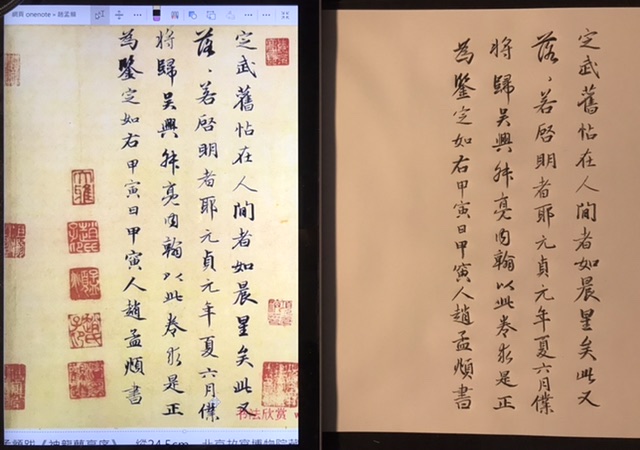 網頁 onenote - 趙孟頫
定武舊帖在人間者如晨星矣此又
落、若啓明者耶元貞元年夏六月僕
將歸吳興舛亮內翰以此卷求是正
為鑒定如右甲寅日甲寅人趙孟頫書
书法欣赏
孟頫跋《神龍蘭亭序》 縱24.5cm 北京故宮博物院藏
定武舊帖在人間者如晨星矣此又
落、若啓明者耶元貞元年夏六月僕
將歸吳興舛亮內翰以此卷求是正
為鑒定如右甲寅日甲寅人趙孟頫書